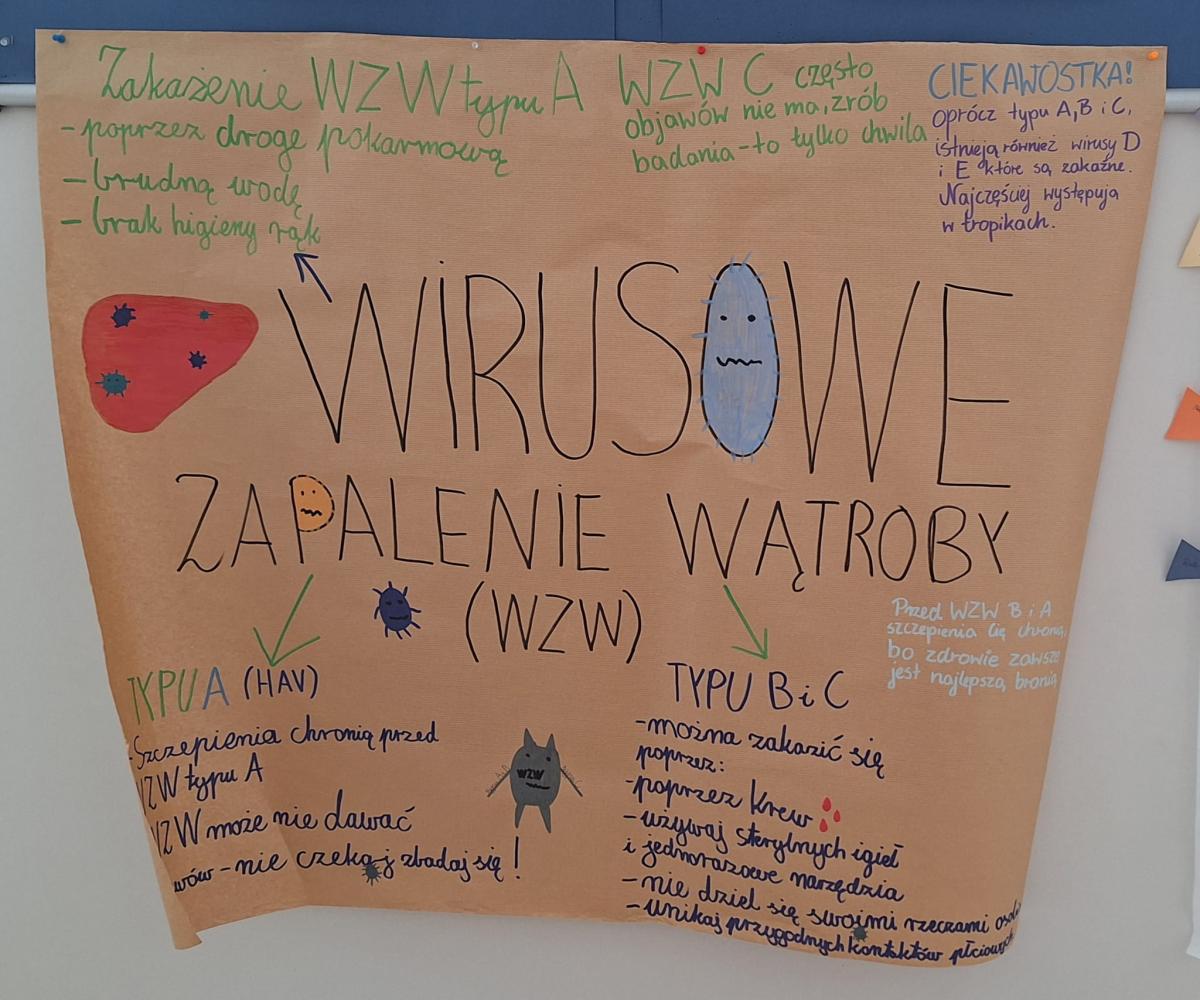 Zakażenie WZW typu A
- poprzez drogę pokarmową
- brudną wodę
- brak higieny rąk
WZW C często
objawów nie ma, zrób
badania - to tylko chwila
CIEKAWOSTKA!
oprócz typu A, B i C,
istnieją również wirusy D
i E które są zakaźne.
Najczęściej występują
w tropikach.
WIRUSOWE
ZAPALENIE WĄTROBY
(WZW)
TYPU A (HAV)
- Szczepienia chronią przed
WZW typu A
WZW może nie dawać
- nie czekaj zbadaj się!
WZW
TYPU B i C
- można zakazić się
poprzez:
- poprzez krew
- używaj sterylnych igieł
i jednorazowe narzędzia
- nie dziel się swoimi rzeczami
- unikaj przygodnych kontaktów płciowych
Przed WZW B i A
szczepienia Cię chronią,
bo zdrowie zawsze
jest najlepszą bronią